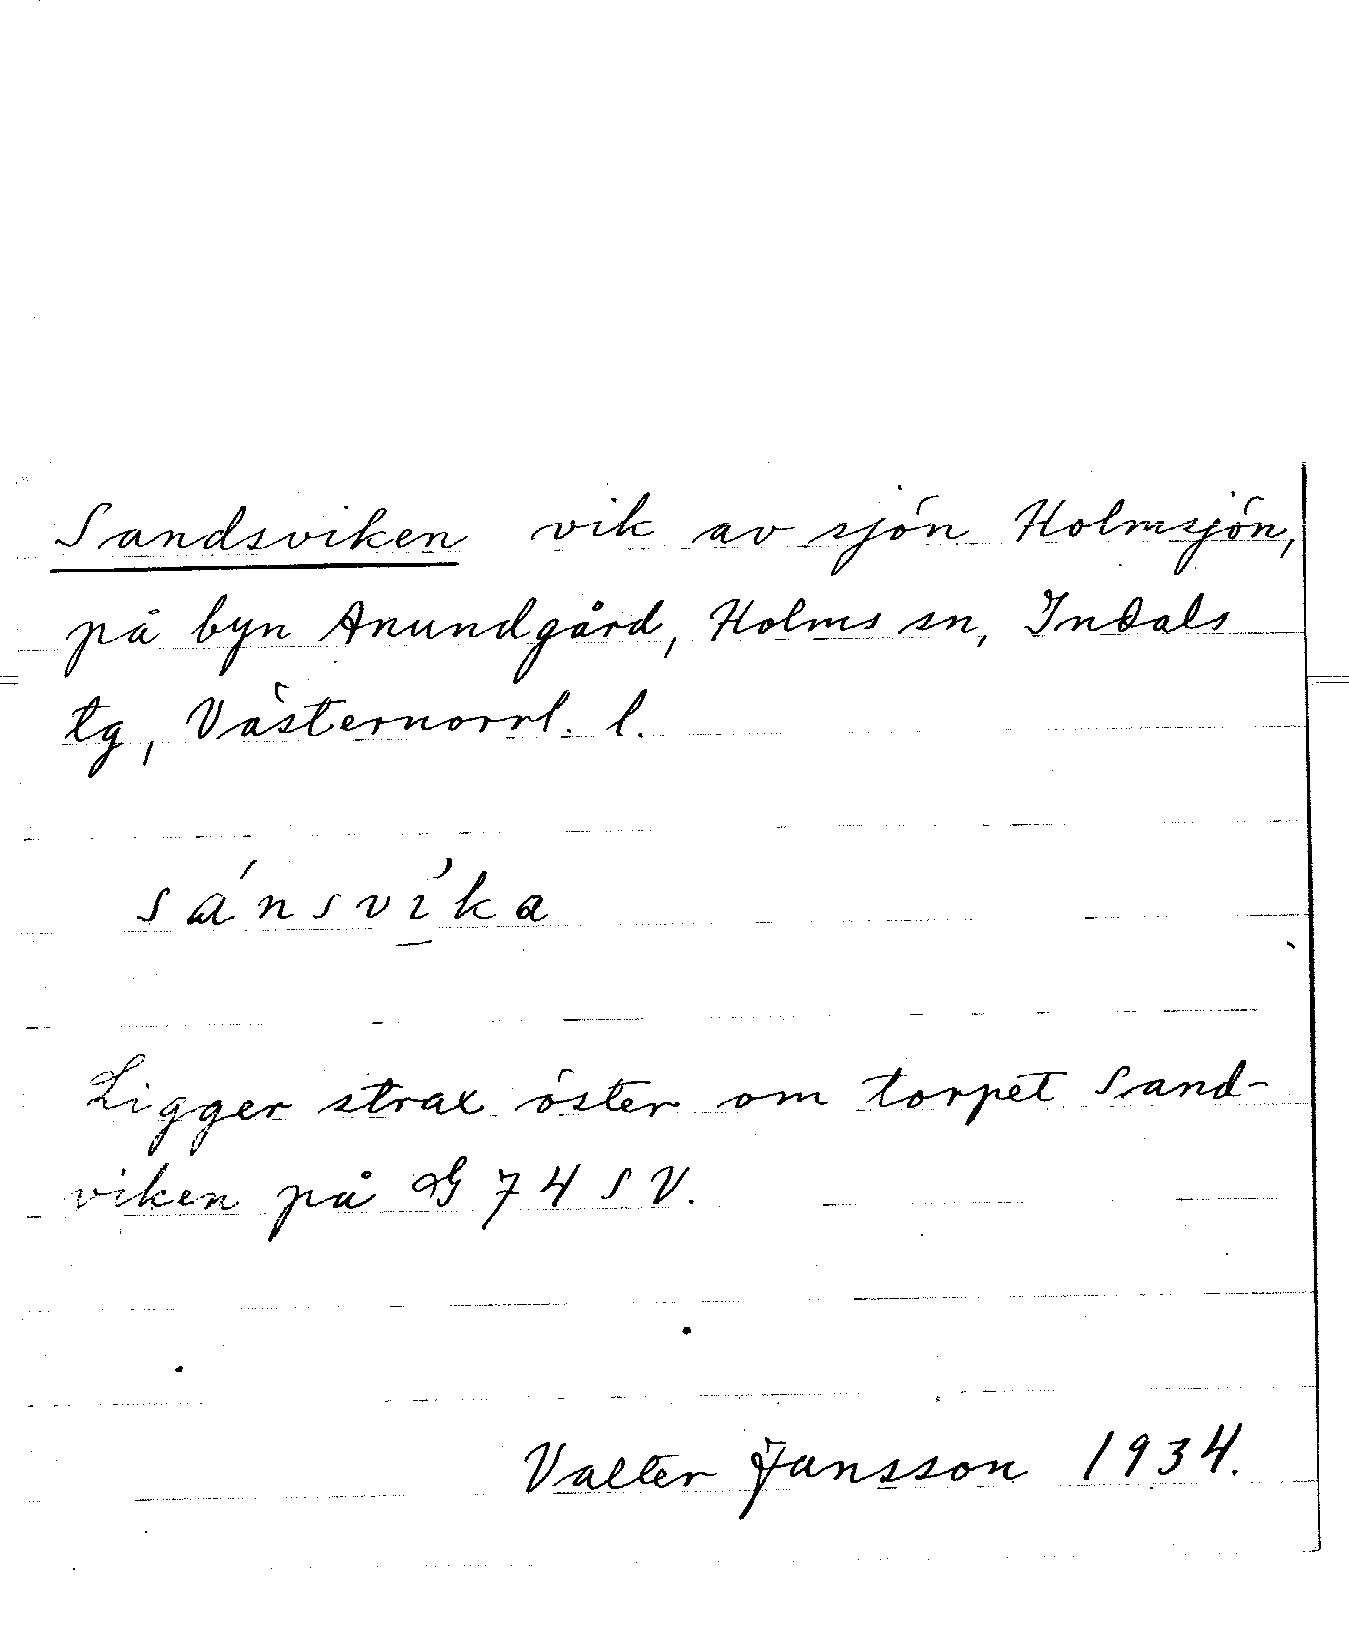 Sandsviken vik av sjön Holmsjön,
på byn Anundgård, Holms sn, Indals
tg, Västernorrl. l.
sánsvỉ̱ka
Ligger strax öster om torpet Sand-
viken på G 74 SV.
Valter Jansson 1934.